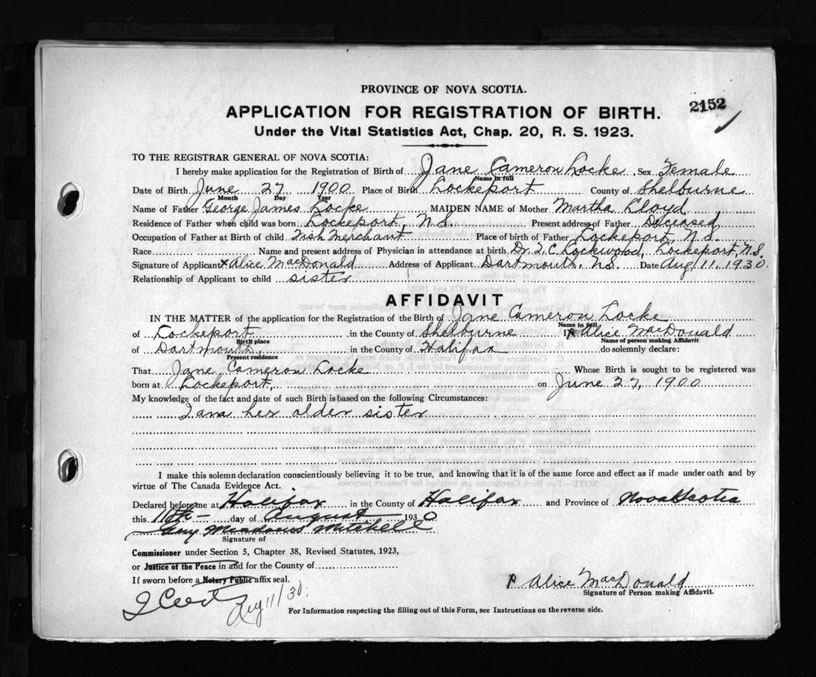 PROVINCE OF NOVA SCOTIA.
2152
APPLICATION FOR REGISTRATION OF BIRTH.
Under the Vital Statistics Act, Chap. 20, R. S. 1923.
TO THE REGISTRAR GENERAL OF NOVA SCOTIA:
I hereby make application for the Registration of Birth of Jane Cameron Locke Sex Female
Name in full
Date of Birth June 27 1900 Place of Birth Lockeport County of Shelburne
Month Day Year
Name of Father George James Locke MAIDEN NAME of Mother Martha Lloyd
Residence of Father when child was born Lockeport, N.S. Present address of Father Deceased
Occupation of Father at Birth of child Fish Merchant Place of birth of Father Lockeport, N.S.
Race Name and present address of Physician in attendance at birth Dr. Lockwood, Lockeport, N.S.
Signature of Applicant Alice MacDonald Address of Applicant Dartmouth, N.S. Date Aug 11, 1930.
Relationship of Applicant to child sister
AFFIDAVIT
IN THE MATTER of the application for the Registration of the Birth of Jane Cameron Locke
Name in full
of Lockeport in the County of Shelburne I Alice MacDonald
Birth place Name of person making Affidavit
of Dartmouth, in the County of Halifax do solemnly declare:
Present residence
That Jane Cameron Locke Whose Birth is sought to be registered was
born at Lockeport, on June 27, 1900
My knowledge of the fact and date of such Birth is based on the following Circumstances:
I am her older sister
I make this solemn declaration conscientiously believing it to be true, and knowing that it is of the same force and effect as if made under oath and by
virtue of The Canada Evidence Act.
Declared before me at Halifax in the County of Halifax and Province of Nova Scotia
this 11th day of August 1930
Guy Meadows Mitchell
Signature of
Commissioner under Section 5, Chapter 38, Revised Statutes, 1923,
or Justice of the Peace in and for the County of
If sworn before a Notary Public affix seal.
Alice MacDonald
Signature of Person making Affidavit.
Aug 11/30.
For Information respecting the filling out of this Form, see Instructions on the reverse side.